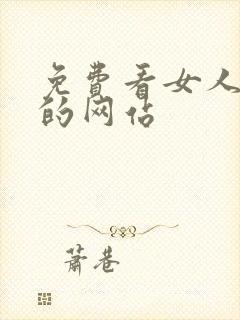 免费看女人
的网站
萧巷